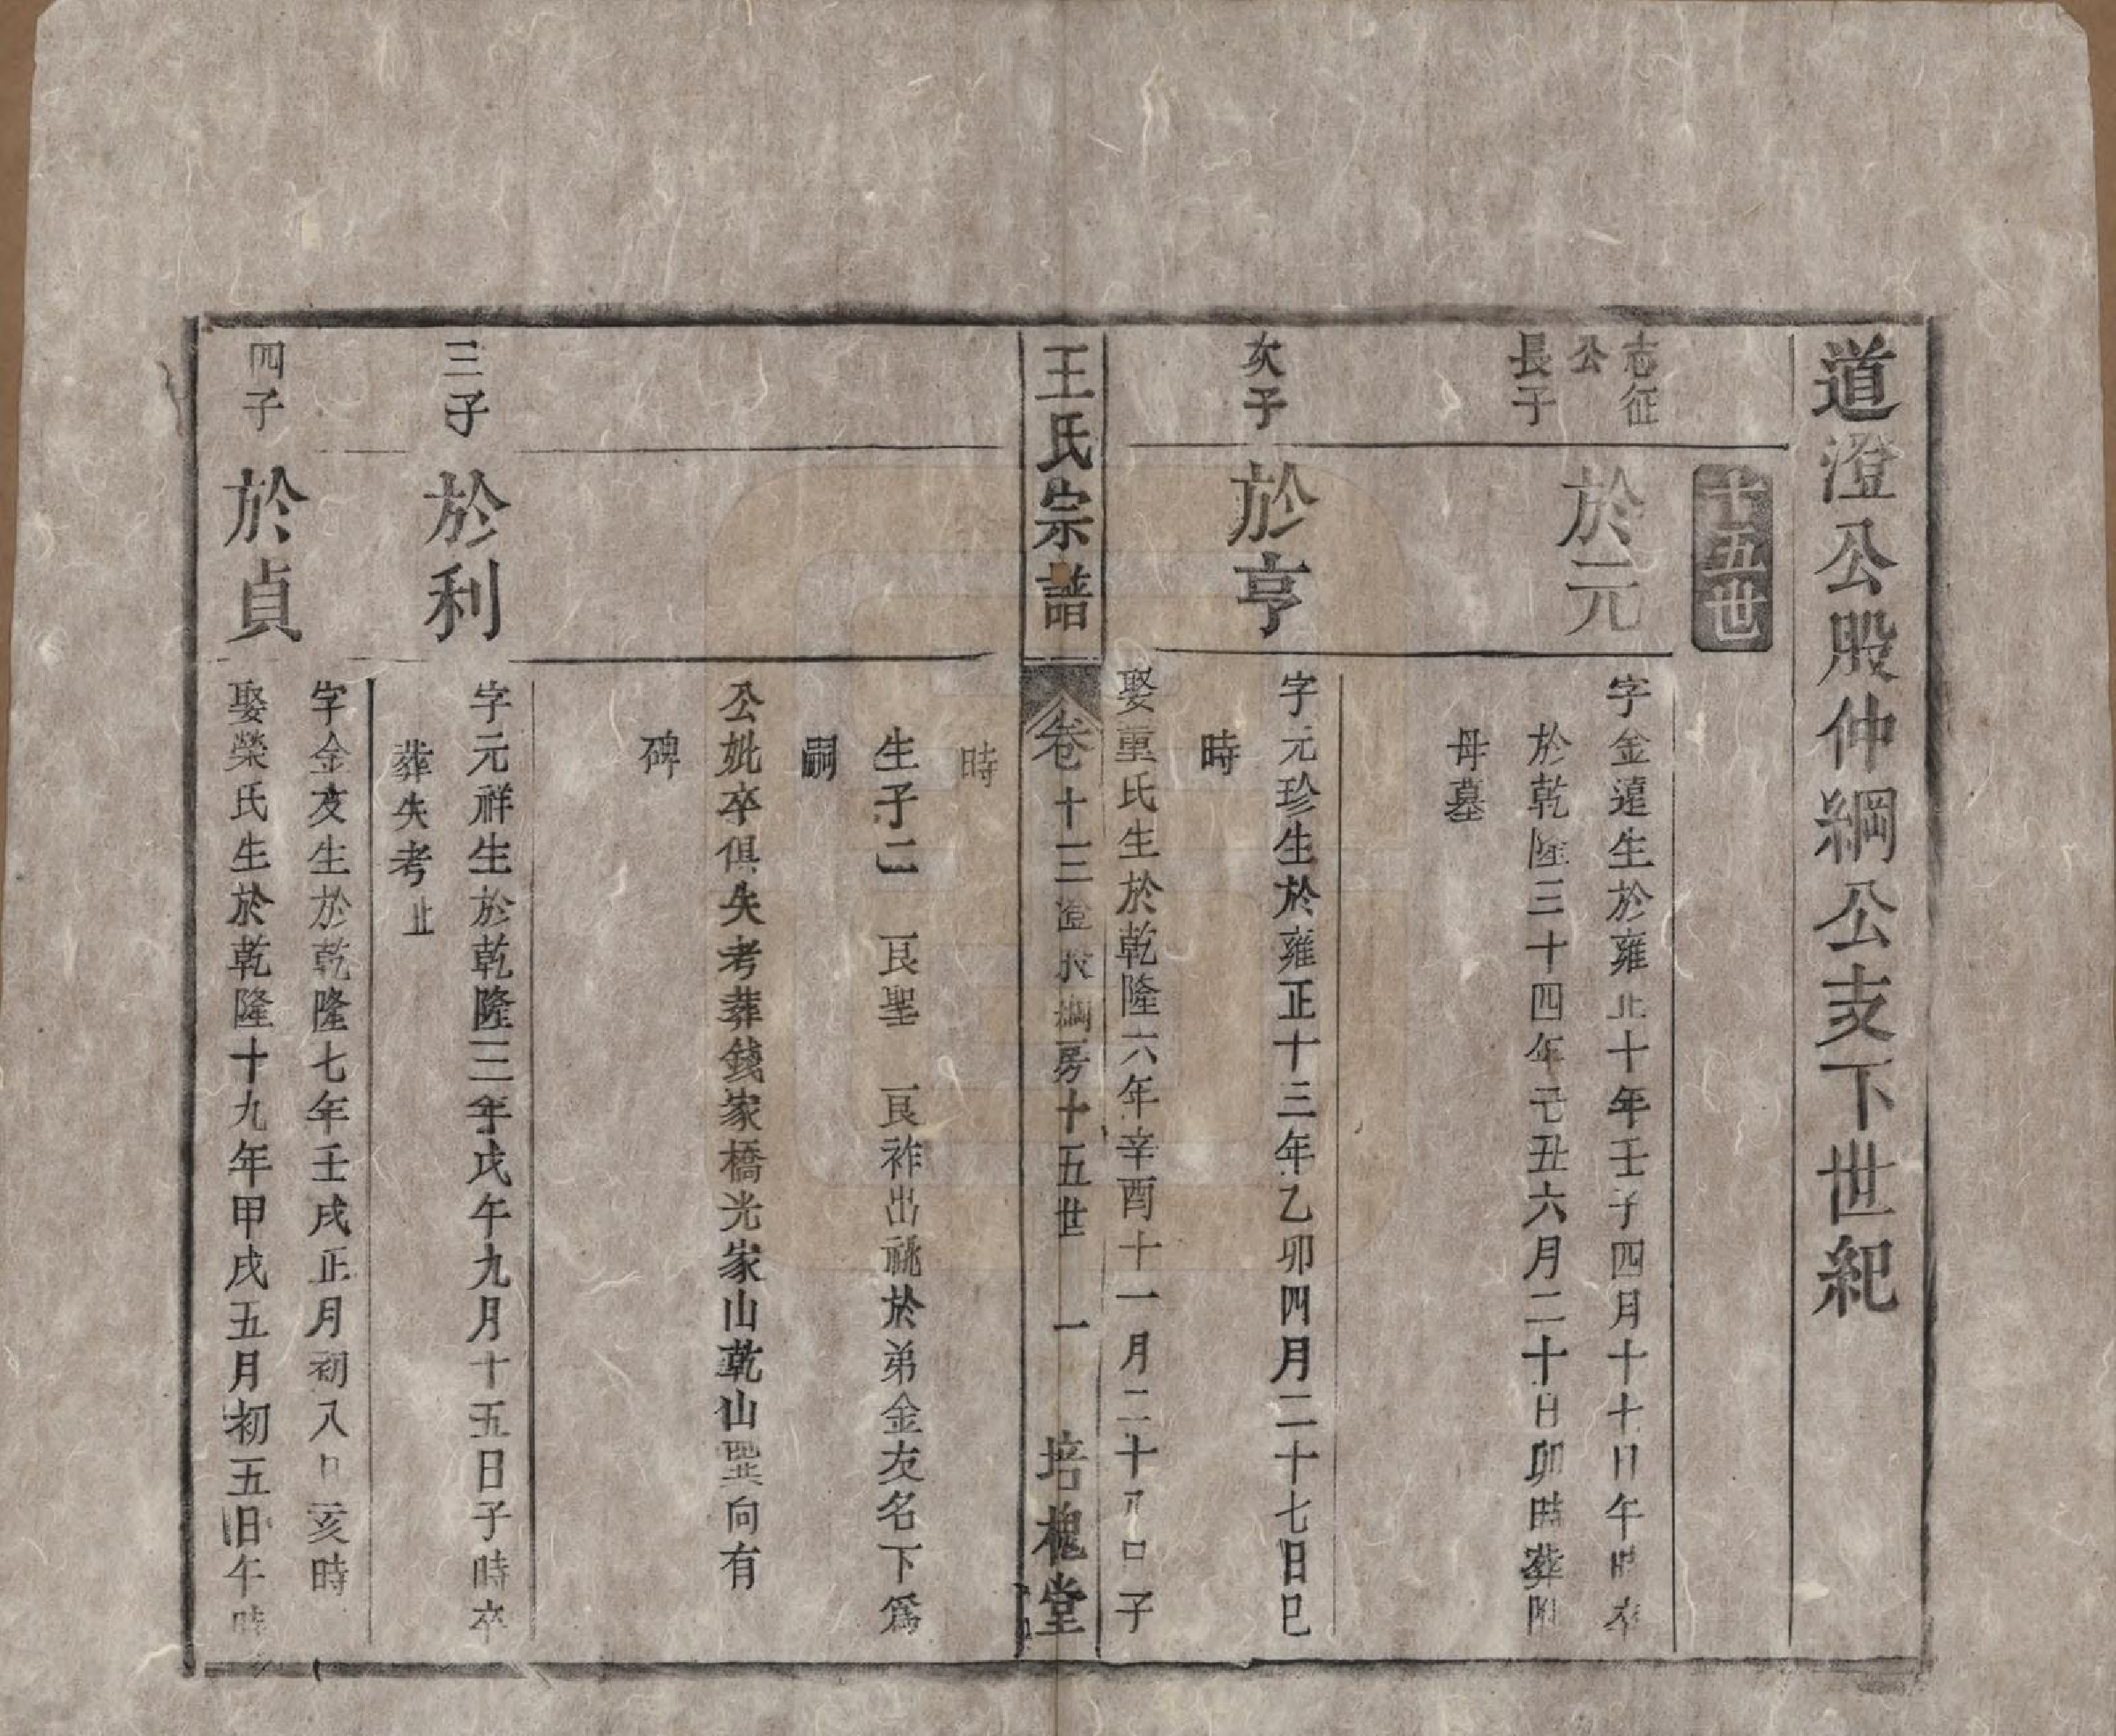 道澄公股仲綱公支下世紀
十五世
志征
公
長子
於元
字金遠生於雍正十年壬子四月十七日午時卒
於乾隆三十四年己丑六月二十日卯時葬附
母墓
次子
於亨
字元珍生於雍正十三年乙卯四月二十七日巳
時
娶重氏生於乾隆六年辛酉十一月二十八日子
王氏宗譜
卷十三澄股綱房十五世 一 培槐堂
時
生子二 艮聖 艮祚出祧於弟金友名下爲
嗣
公妣卒俱失考葬錢家橋光家山乾山巽向有
碑
三子
於利
字元祥生於乾隆三年戊午九月十五日子時卒
葬失考止
四子
於貞
字金友生於乾隆七年壬戌正月初八日亥時
娶榮氏生於乾隆十九年甲戌五月初五日午時